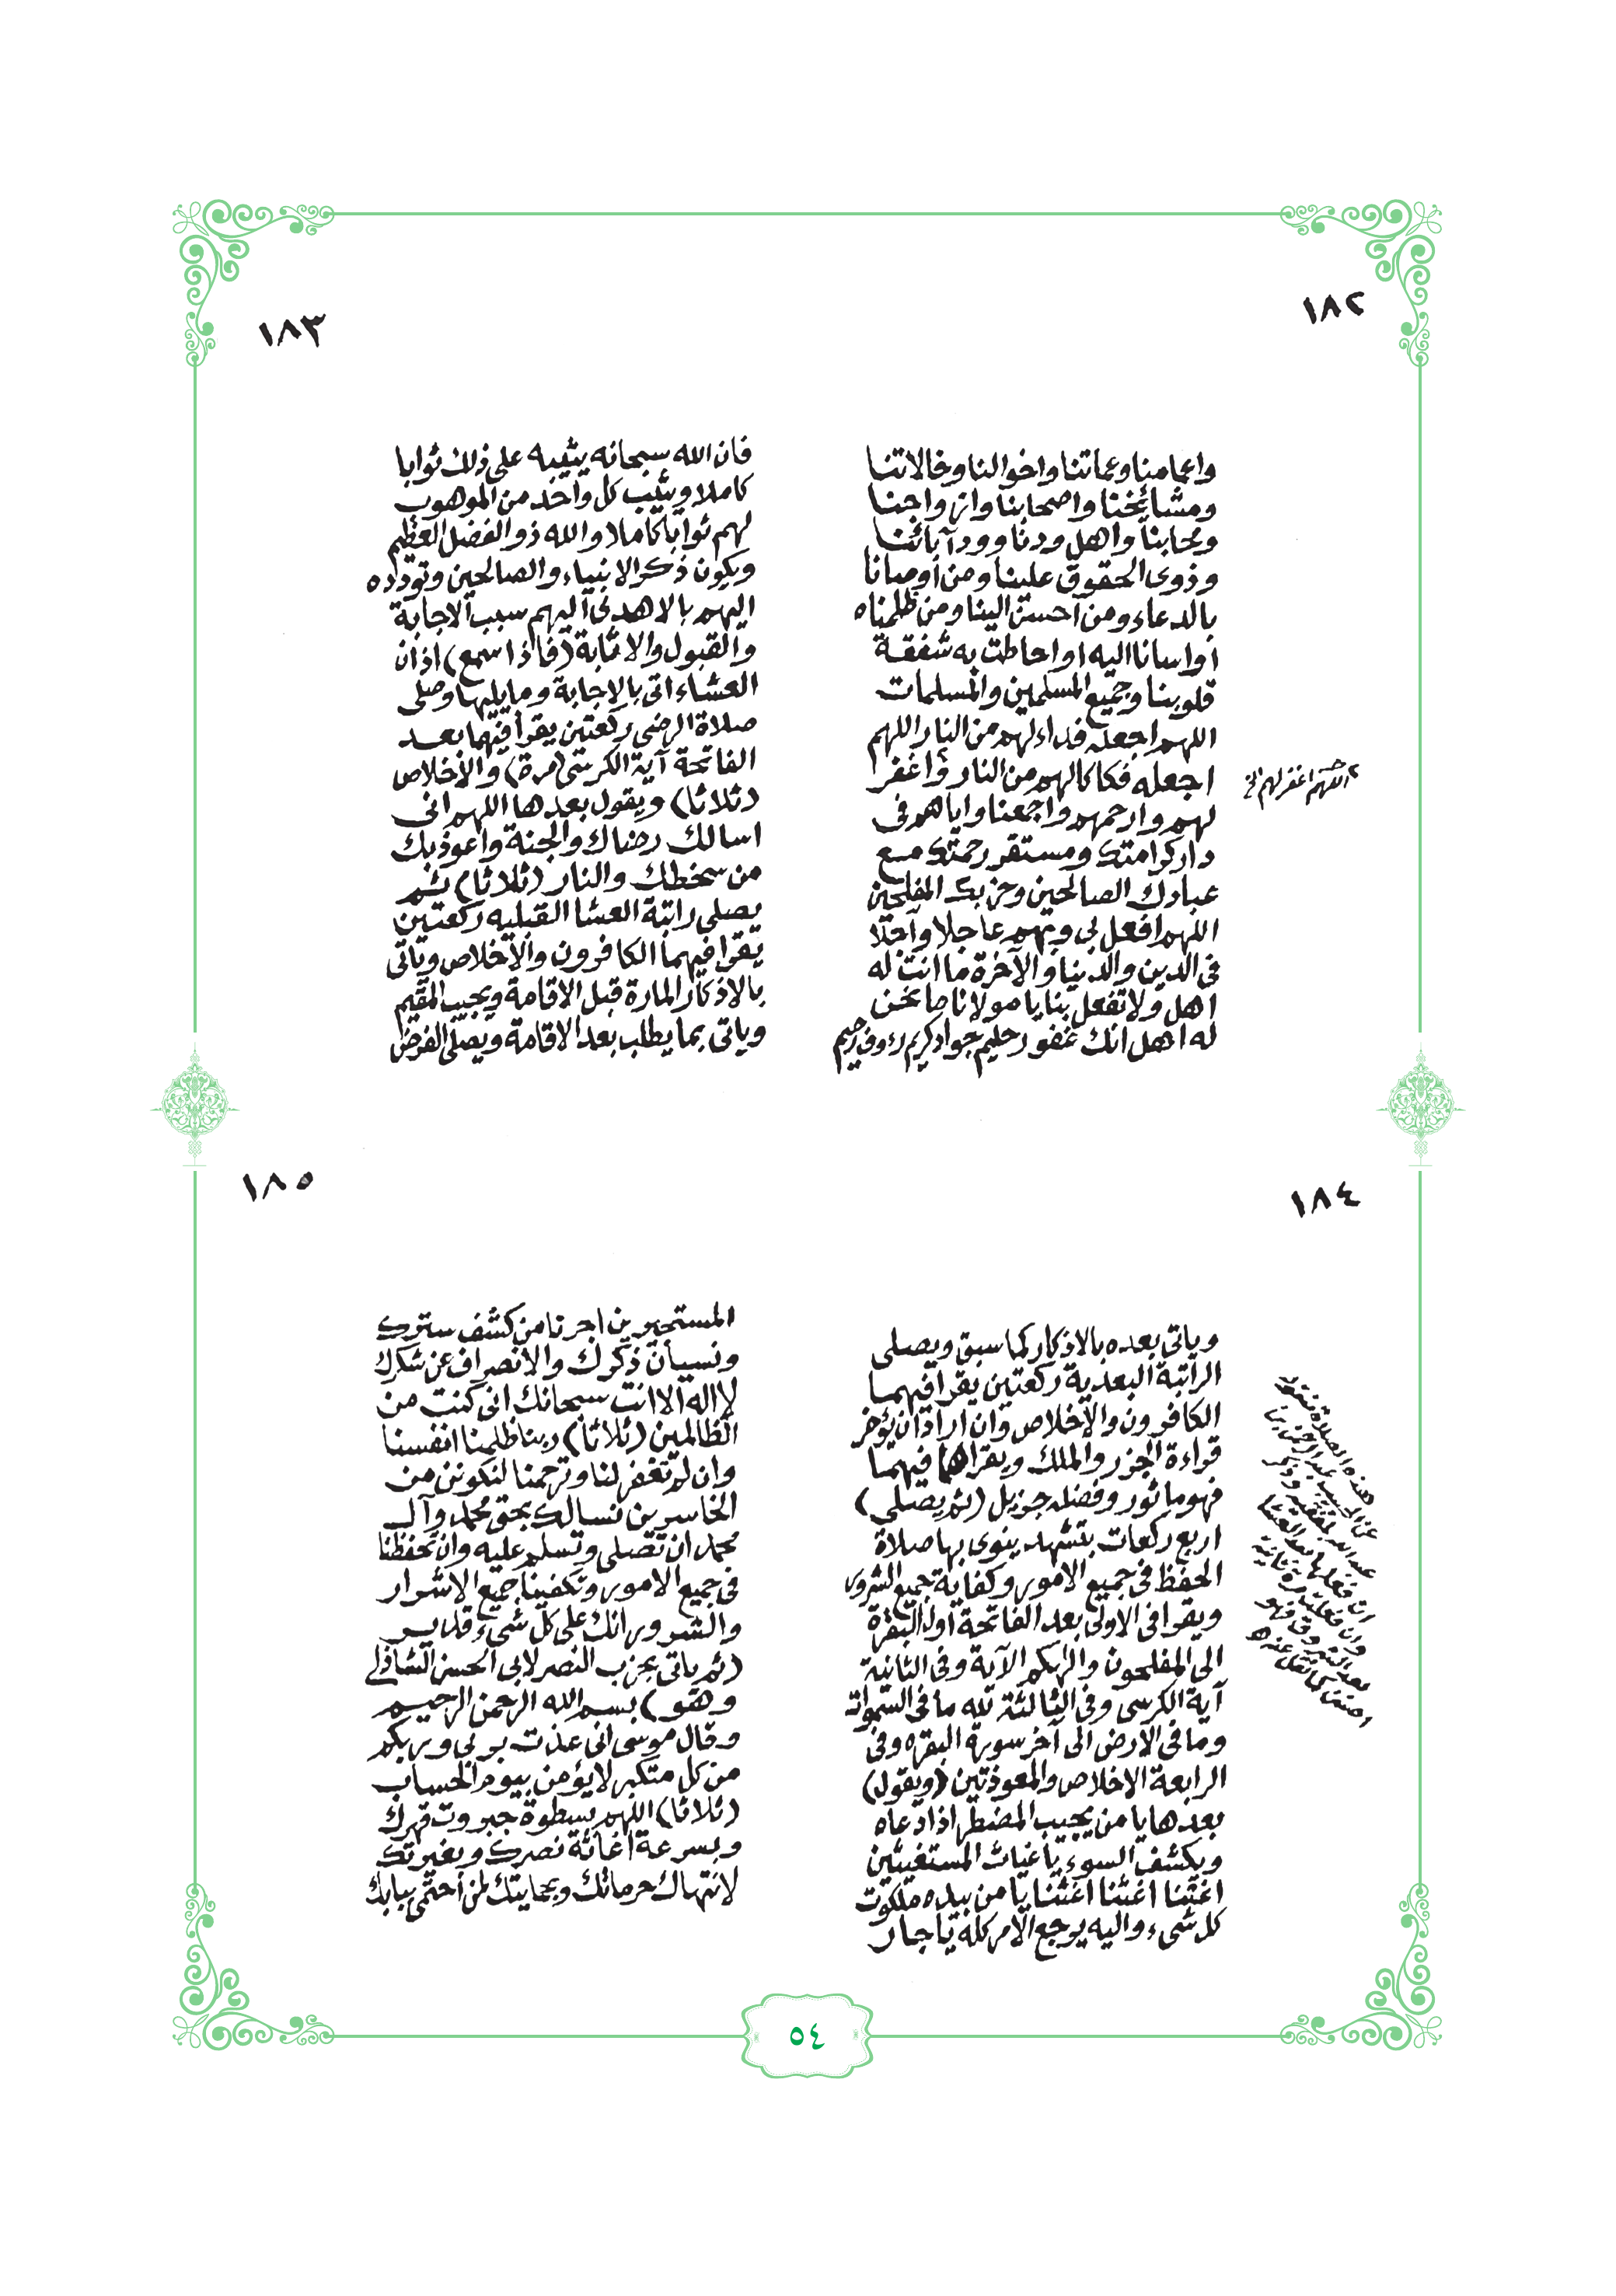 ١٨٢
واعمامنا وعماتنا واخوالنا وخالاتنا
ومشائخنا واصحابنا وازواجنا
ومحابنا واهل ودنا وود آبائنا
وذوى الحقوق علينا ومن أوصانا
بالدعاء ومن احسن الينا ومن ظلمناه
أو اسانا اليه او احاطت به شفقة
قلوبنا وجميع المسلمين والمسلمات
اللهم اجعله فداء لهم من النار اللهم
اجعله فكاكا لهم من النار واغفر
لهم وارحمهم واجمعنا واياهم فى
دار كرامتك ومستقر رحمتك مع
عبادك الصالحين وحزبك المفلحين
اللهم افعل بى وبهم عاجلا وآجلا
فى الدين والدنيا والآخرة ما انت له
اهل ولا تفعل بنا يا مولانا ما نحن
له اهل انك غفور حليم جواد كريم رءوف رحيم
اللهم اغفر لهم الخ
١٨٣
فان الله سبحانه يثيبه على ذلك ثوابا
كاملا ويثيب كل واحد من الموهوب
لهم ثوابا كاملا والله ذو الفضل العظيم
ويكون ذكر الانبياء والصالحين وتودده
اليهم بالاهدى اليهم سبب الاجابة
والقبول والاثابة (فاذا سمع) اذان
العشاء اتى بالاجابة وما يليها وصلى
صلاة الرضى ركعتين يقرا فيهما بعد
الفاتحة آية الكرسى (مرة) والأخلاص
(ثلاثا) ويقول بعدها اللهم انى
اسالك رضاك والجنة واعوذ بك
من سخطك والنار (ثلاثا) ثم
يصلى راتبة العشا القبليه ركعتين
يقرا فيهما الكافرون والأخلاص وياتى
بالاذكار المارة قبل الاقامة ويجيب المقيم
وياتى بما يطلب بعد الاقامة ويصلى الفرض
١٨٤
وياتى بعده بالاذكار كما سبق ويصلى
الراتبة البعدية ركعتين يقرا فيهما
الكافرون والأخلاص وان اراد ان يؤخر
قراءة الجزر والملك ويقراهما فيهما
فهو ماثور وفضله جزيل (ثم يصلى)
اربع ركعات بتشهد ينوى بها صلاة
الحفظ فى جميع الامور وكفاية جميع الشرور
ويقرا فى الاولى بعد الفاتحة اول البقرة
الى المفلحون والهكم الآية وفى الثانية
آية الكرسى وفى الثالثة لله ما فى السموات
وما فى الارض الى آخر سورة البقره وفى
الرابعة الاخلاص والمعوذتين (ويقول)
بعدها يا من يجيب المضطر اذا دعاه
ويكشف السوء يا غياث المستغيثين
اغثنا اغثنا اغثنا يا من بيده ملكوت
كل شىء واليه يرجع الامر كله يا جار
هذه الصلاة
عن الحبيب عبد الرحمن بن
عبد الله بلفقيه وذكر
ان فعلها بعد العشا
وان فعلت مرة ثانية
بعد الشروق فهو
١٨٥
المستجيرين اجرنا من كشف سترك
ونسيان ذكرك والانصراف عن شكرك
لا اله الا انت سبحانك انى كنت من
الظالمين (ثلاثا) ربنا ظلمنا انفسنا
وان لم تغفر لنا وترحمنا لنكونن من
الخاسرين نسالك بحق محمد وآل
محمد ان تصلى وتسلم عليه وان تحفظنا
فى جميع الامور وتكفينا جميع الاشرار
والشرور انك على كل شىء قدير
(ثم ياتى بحزب النصر لابى الحسن الشاذلى
وهو) بسم الله الرحمن الرحيم
وقال موسى انى عذت بربى وربكم
من كل متكبر لا يؤمن بيوم الحساب
(ثلاثا) اللهم بسطوة جبروت قهرك
وبسرعة اغاثة نصرك وبغيرتك
لانتهاك حرماتك وبحمايتك لمن احتمى ببابك
٥٤